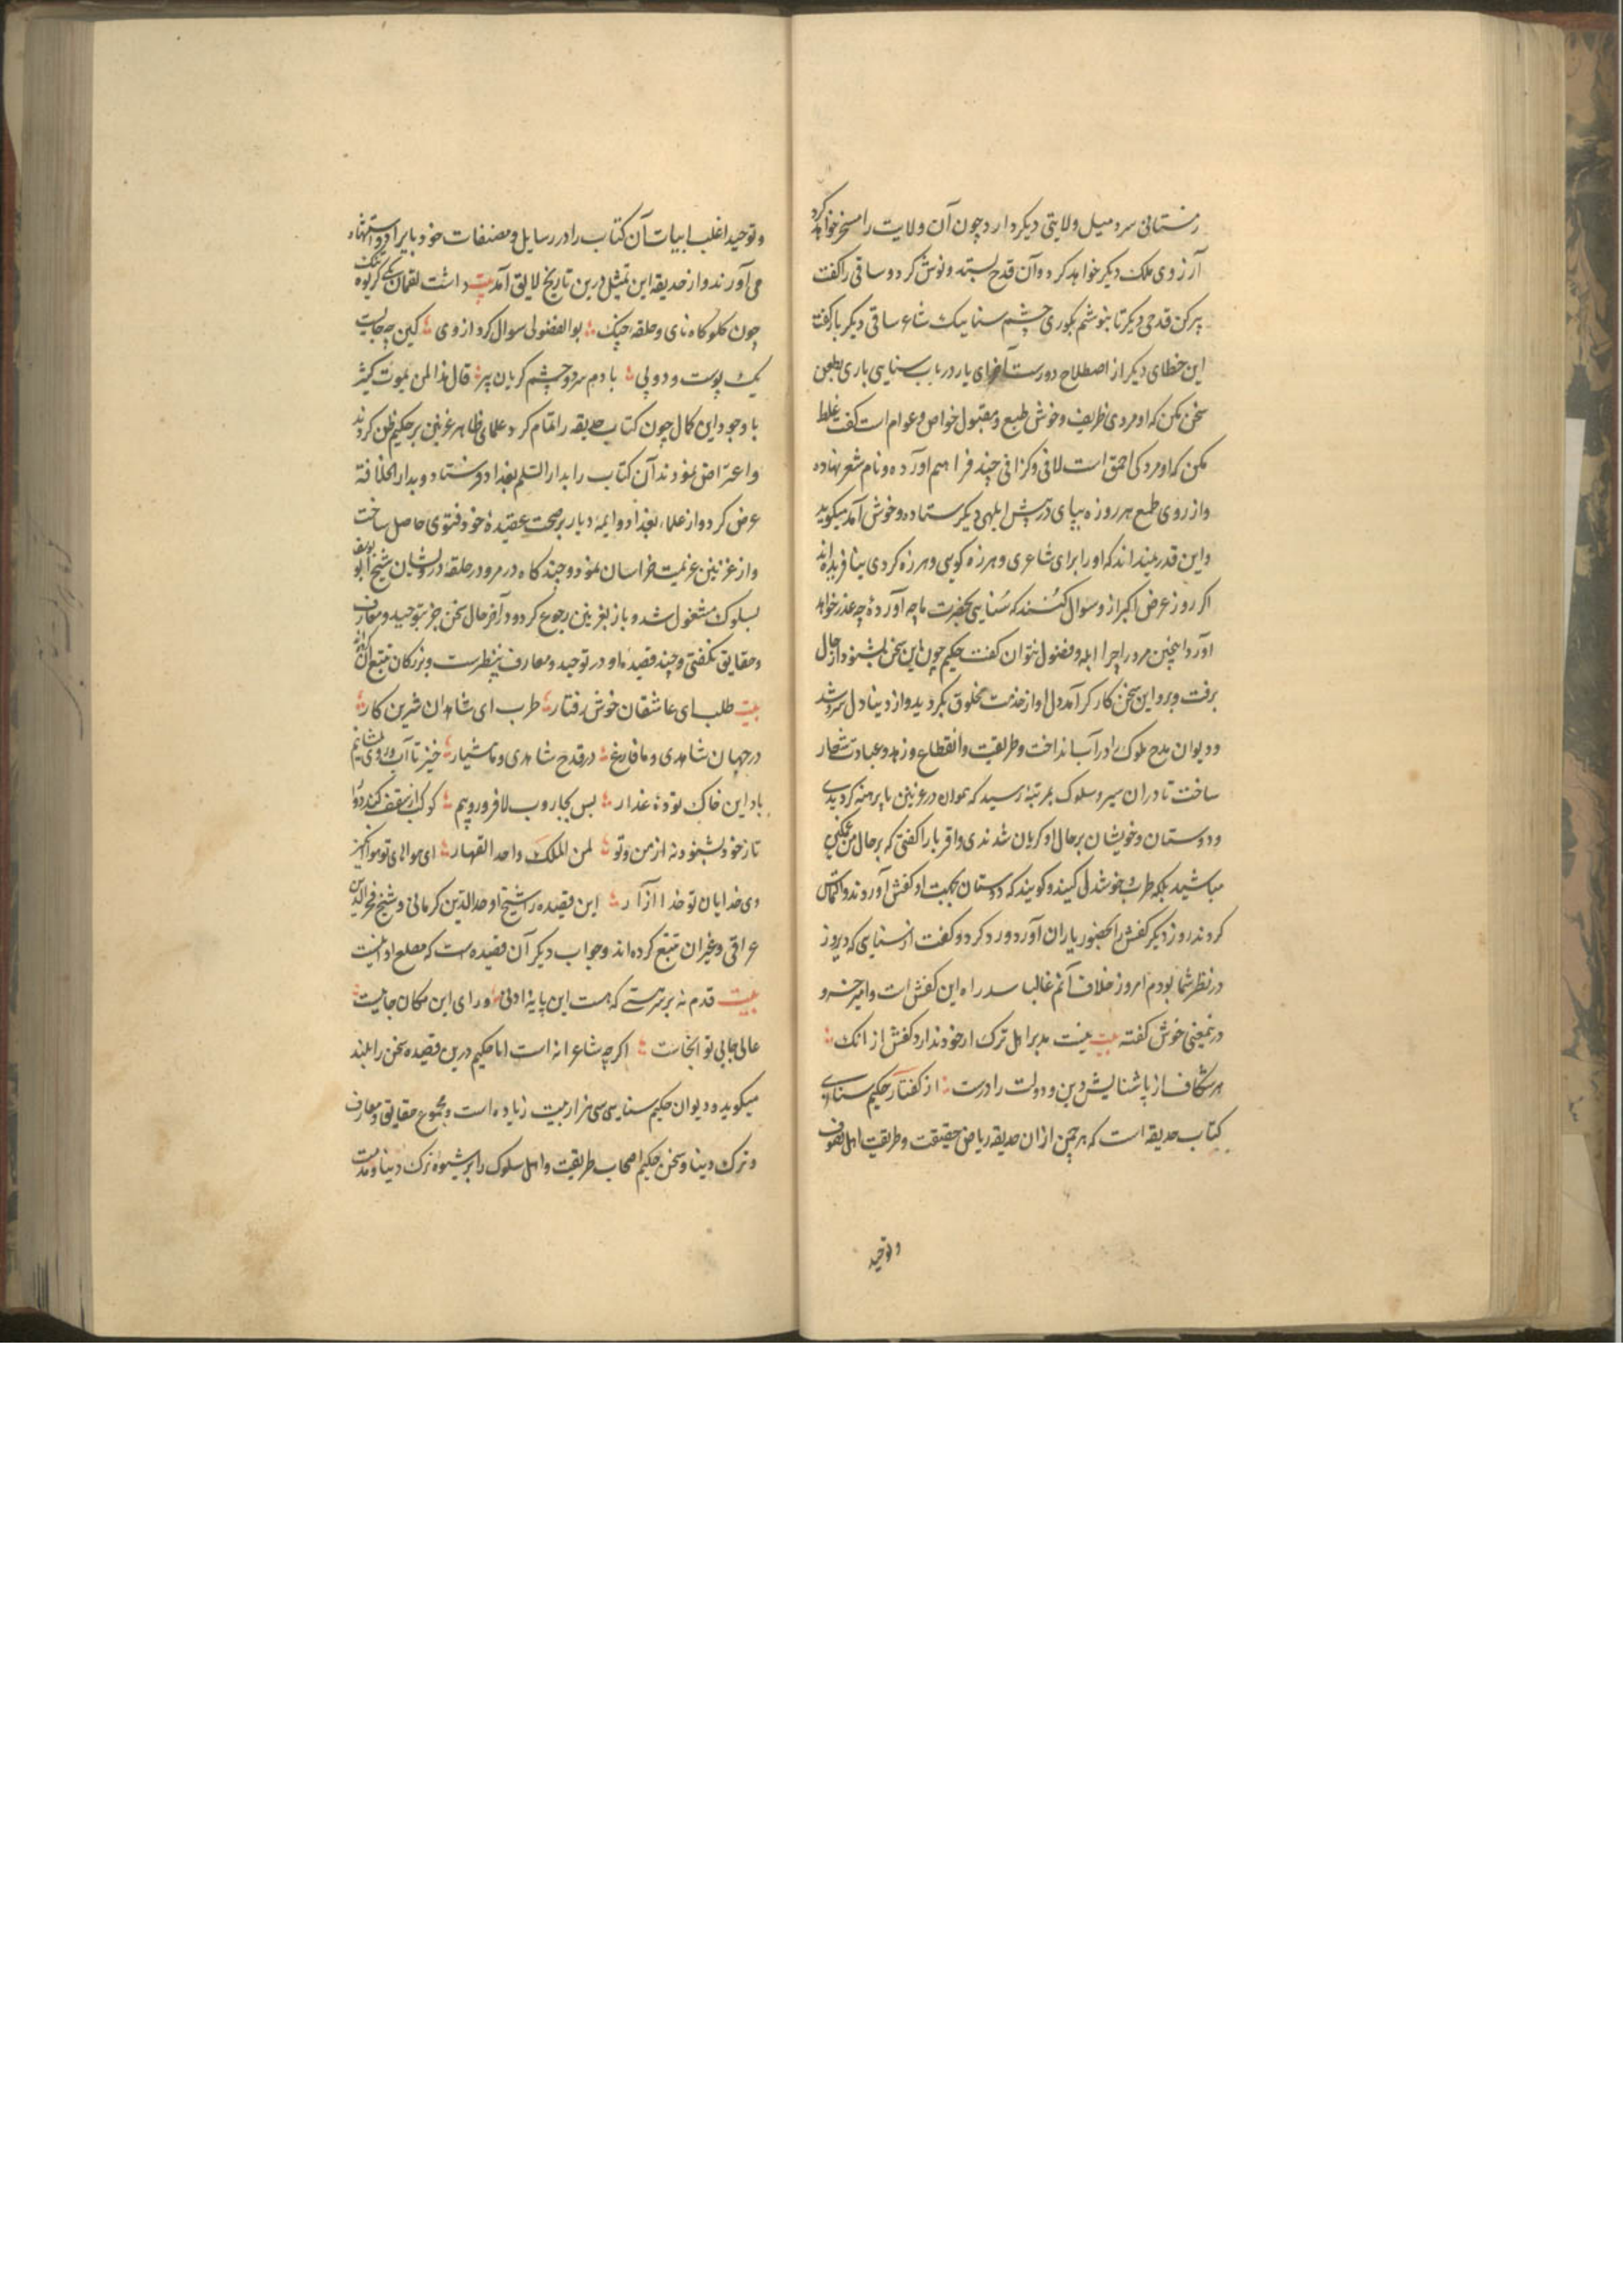 زمستانی سرد میل ولایتی دیکر دارد چون آن ولایت را مسخر خواهد کرد
آرزوی ملک دیکر خواهد کرد و آن قدح بستد و نوش کرد و ساقی را کفت
پر کن قدحی دیکر تا بنوشم بکوری چشم سناییک شاعر ساقی دیکر بار کفت
این خطای دیکر از اصطلاح دورست آخر ای یار در باب سنایی باری بطعن
سخن مکن که او مردی ظریف و خوش طبع و مقبول خواص و عوام است کفت غلط
مکن که او مردکی احمق است لافی و کزافی چند فراهم آورده و نام شعر نهاده
و از روی طمع هر روزه بپای در پیش ابلهی دیکر ستاده و خوش آمد میکوید
و این قدر نمیداند که او را برای شاعری و هرزه کویی و هرزه کردی نیافریده‌اند
اکر روز عرض اکبر ازو سوال کنند که سنایی بحضرت ما چه آوردۀ چه عذر خواهد
آورد اینچنین مرد را جز ابله و فضول نتوان کفت حکیم چون این سخن بشنود از حال
برفت و برو این سخن کارکر آمد دل او از خدمت مخلوق بکردید و از دنیا دل سرد شد
و دیوان مدح ملوک را در آب انداخت و طریقت و انقطاع و زهد و عبادت شعار
ساخت تا در ان سیر و سلوک بمرتبۀ رسید که مدام در غزنین پا برهنه کردیدی
و دوستان و خویشان بر حال او کریان شدندی و اقربا را کفتی که بر حال من غمکین
مباشید بلکه طرب و خوشدلی کنید و کویند که دوستان بجهت او کفش آوردند و التماس
کردند روز دیکر کفش را بحضور یاران آورد و رد کرد و کفت آن سنایی که دیروز
در نظر شما بودم امروز خلاف آنم غالبا سد راه این کفش است و امیر خسرو
درینمعنی خوش کفته بیت نیست مدبر اهل ترک ار خود ندارد کفش از انک
هر شکاف از پاشنایش دین و دولت را درست از کفتار حکیم سنایی
کتاب حدیقه است که هر چمن از ان حدیقه ریاض حقیقت و طریقت اهل تصوف
و توحید
و توحید اغلب ابیات آن کتاب را در رسایل و مصنفات خود بایراد و استشهاد
می آورند و از حدیقه این تمثیل درین تاریخ لایق آمد بیت داشت لقمان یکی کریوه تنک
چون کلوکاه نای و حلقه چنک بوالفضولی سوال کرد از وی کین چه جایست
یک پوست و دو پی با دم سرد و چشم کریان پیر قال هذا لمن یموت کثیر
با وجود این کمال چون کتاب حدیقه را تمام کرد علمای ظاهر غزنین بر حکیم طعن کردند
و اعتراض نمودند آن کتاب را بدار السلم بغداد فرستاد و بدار الخلافة
عرض کرد و از علماء بغداد و ایمه دیار بر صحت عقیدۀ خود فتوی حاصل ساخت
و از غزنین عزیمت خراسان نمود و چند کاه در مرو در حلقۀ درویشان شیخ ابو یوسف
بسلوک مشغول شد و باز بغزنین رجوع کرد و در آخر حال سخن جز بتوحید و معارف
و حقایق نکفتی و چند قصیده او در توحید و معارف بینظیرست و بزرکان تتبع آن کرده
بیت طلب ای عاشقان خوش رفتار طرب ای شاهدان شیرین کار
در جهان شاهدی و ما فارغ در قدح شاهدی و ما هشیار خیز تا آب روی بنشانیم
باد این خاک تودۀ غدار پس بجاروب لا فرو روبیم کوکب از سقف کنبد دوار
تا ز خود بشنود نه از من و تو لمن الملک واحد القهار ای هواهای تو هوا انکیز
وی خدایان تو خدا آزار این قصیده را شیخ اوحد الدین کرمانی و شیخ فخر الدین
عراقی و غیران تتبع کرده اند و جواب دیکر آن قصیده‌ست که مطلع او اینست
بیت قدم نه بر سر هستی که هست این پایۀ ادنی ورای این مکان جاییست
عالی جای تو آنجاست اکرچه شاعرانه است اما حکیم درین قصیده سخن را بلند
میکوید و دیوان حکیم سنایی سی هزار بیت زیاده است و مجموع حقایق و معارف
و ترک دنیا و سخن حکیم اصحاب طریقت و اهل سلوک را بر شیوه ترک دنیا و مذمت